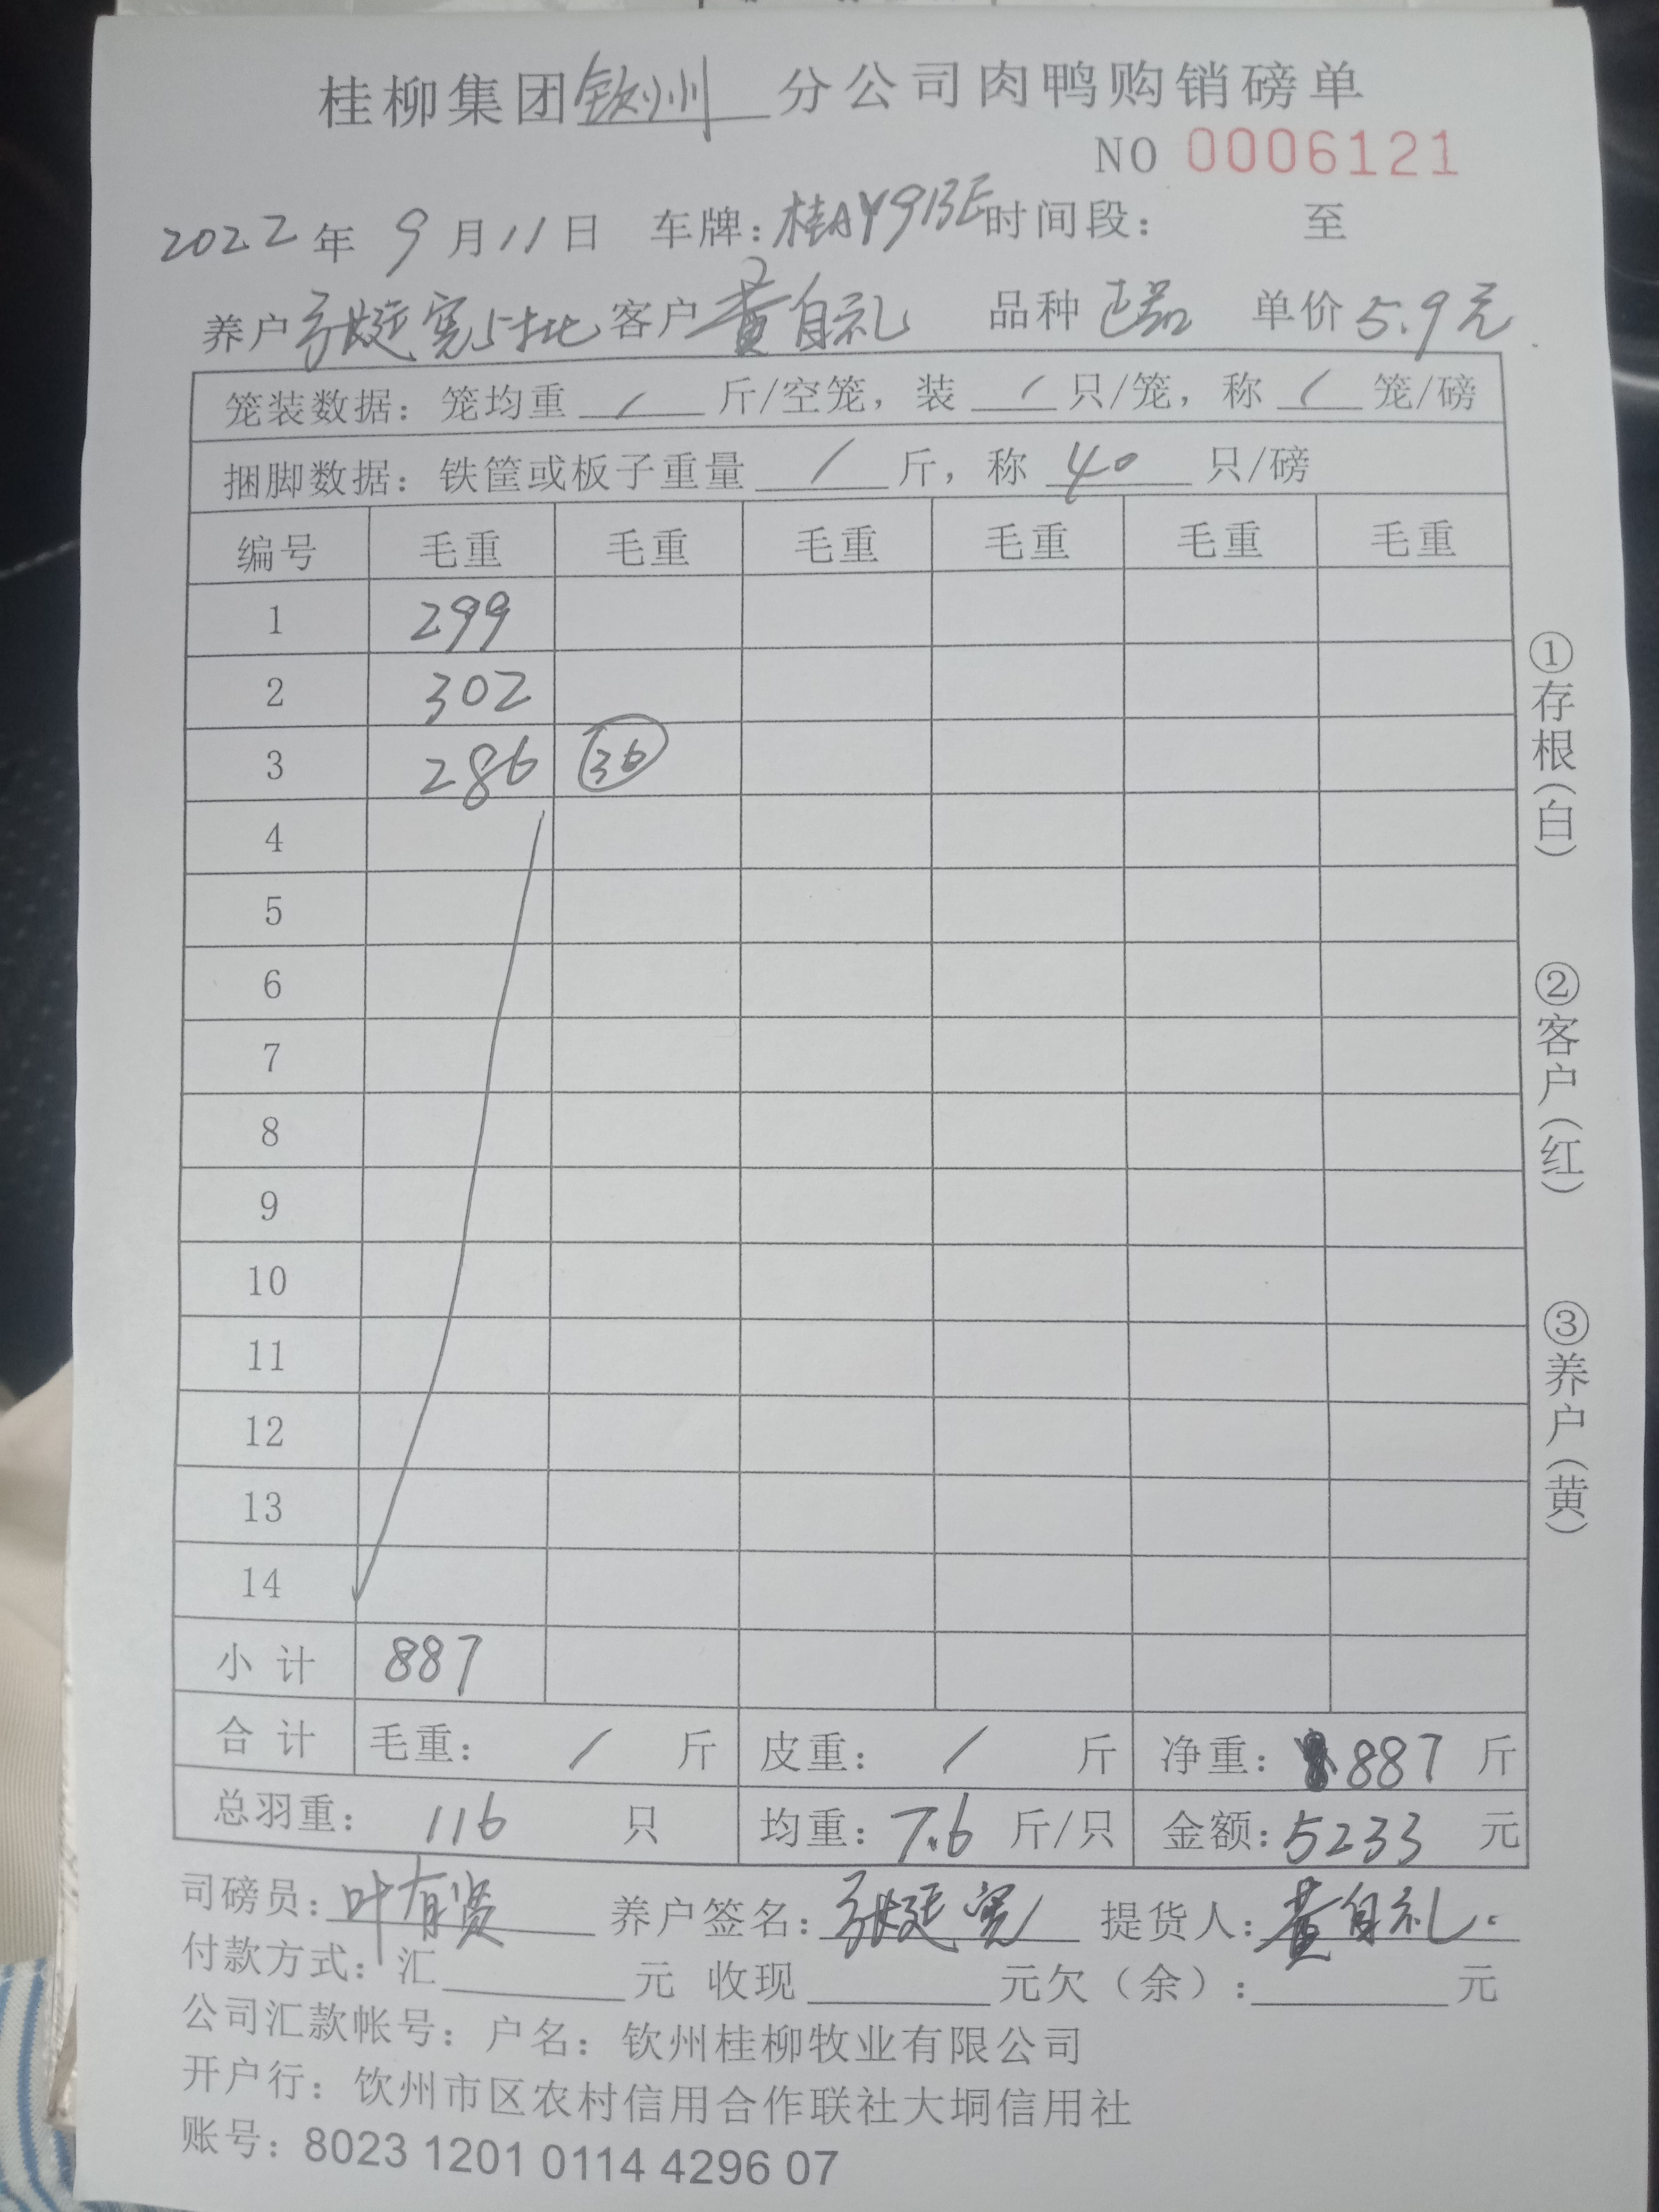 桂柳集团钦州分公司肉鸭购销磅单
NO 0006121
2022年9月11日 车牌:桂AY91BE时间段: 至
养户张延宽5批 客户黄自礼 品种正品 单价5.9元
笼装数据: 笼均重 / 斤/空笼, 装 / 只/笼, 称 / 笼/磅
捆脚数据: 铁筐或板子重量 / 斤, 称 40 只/磅
编号 毛重 毛重 毛重 毛重 毛重 毛重
1 299
2 302
3 286 36
4
5
6
7
8
9
10
11
12
13
14
小计 887
合计 毛重: / 斤 皮重: / 斤 净重: 887 斤
总羽重: 116 只 均重: 7.6 斤/只 金额: 5233 元
司磅员: 叶有贤 养户签名: 张延宽 提货人: 黄自礼.
付款方式: 汇 元 收现 元欠(余): 元
公司汇款帐号: 户名: 钦州桂柳牧业有限公司
开户行: 钦州市区农村信用合作联社大垌信用社
账号: 8023 1201 0114 4296 07
①存根(白)
②客户(红)
③养户(黄)